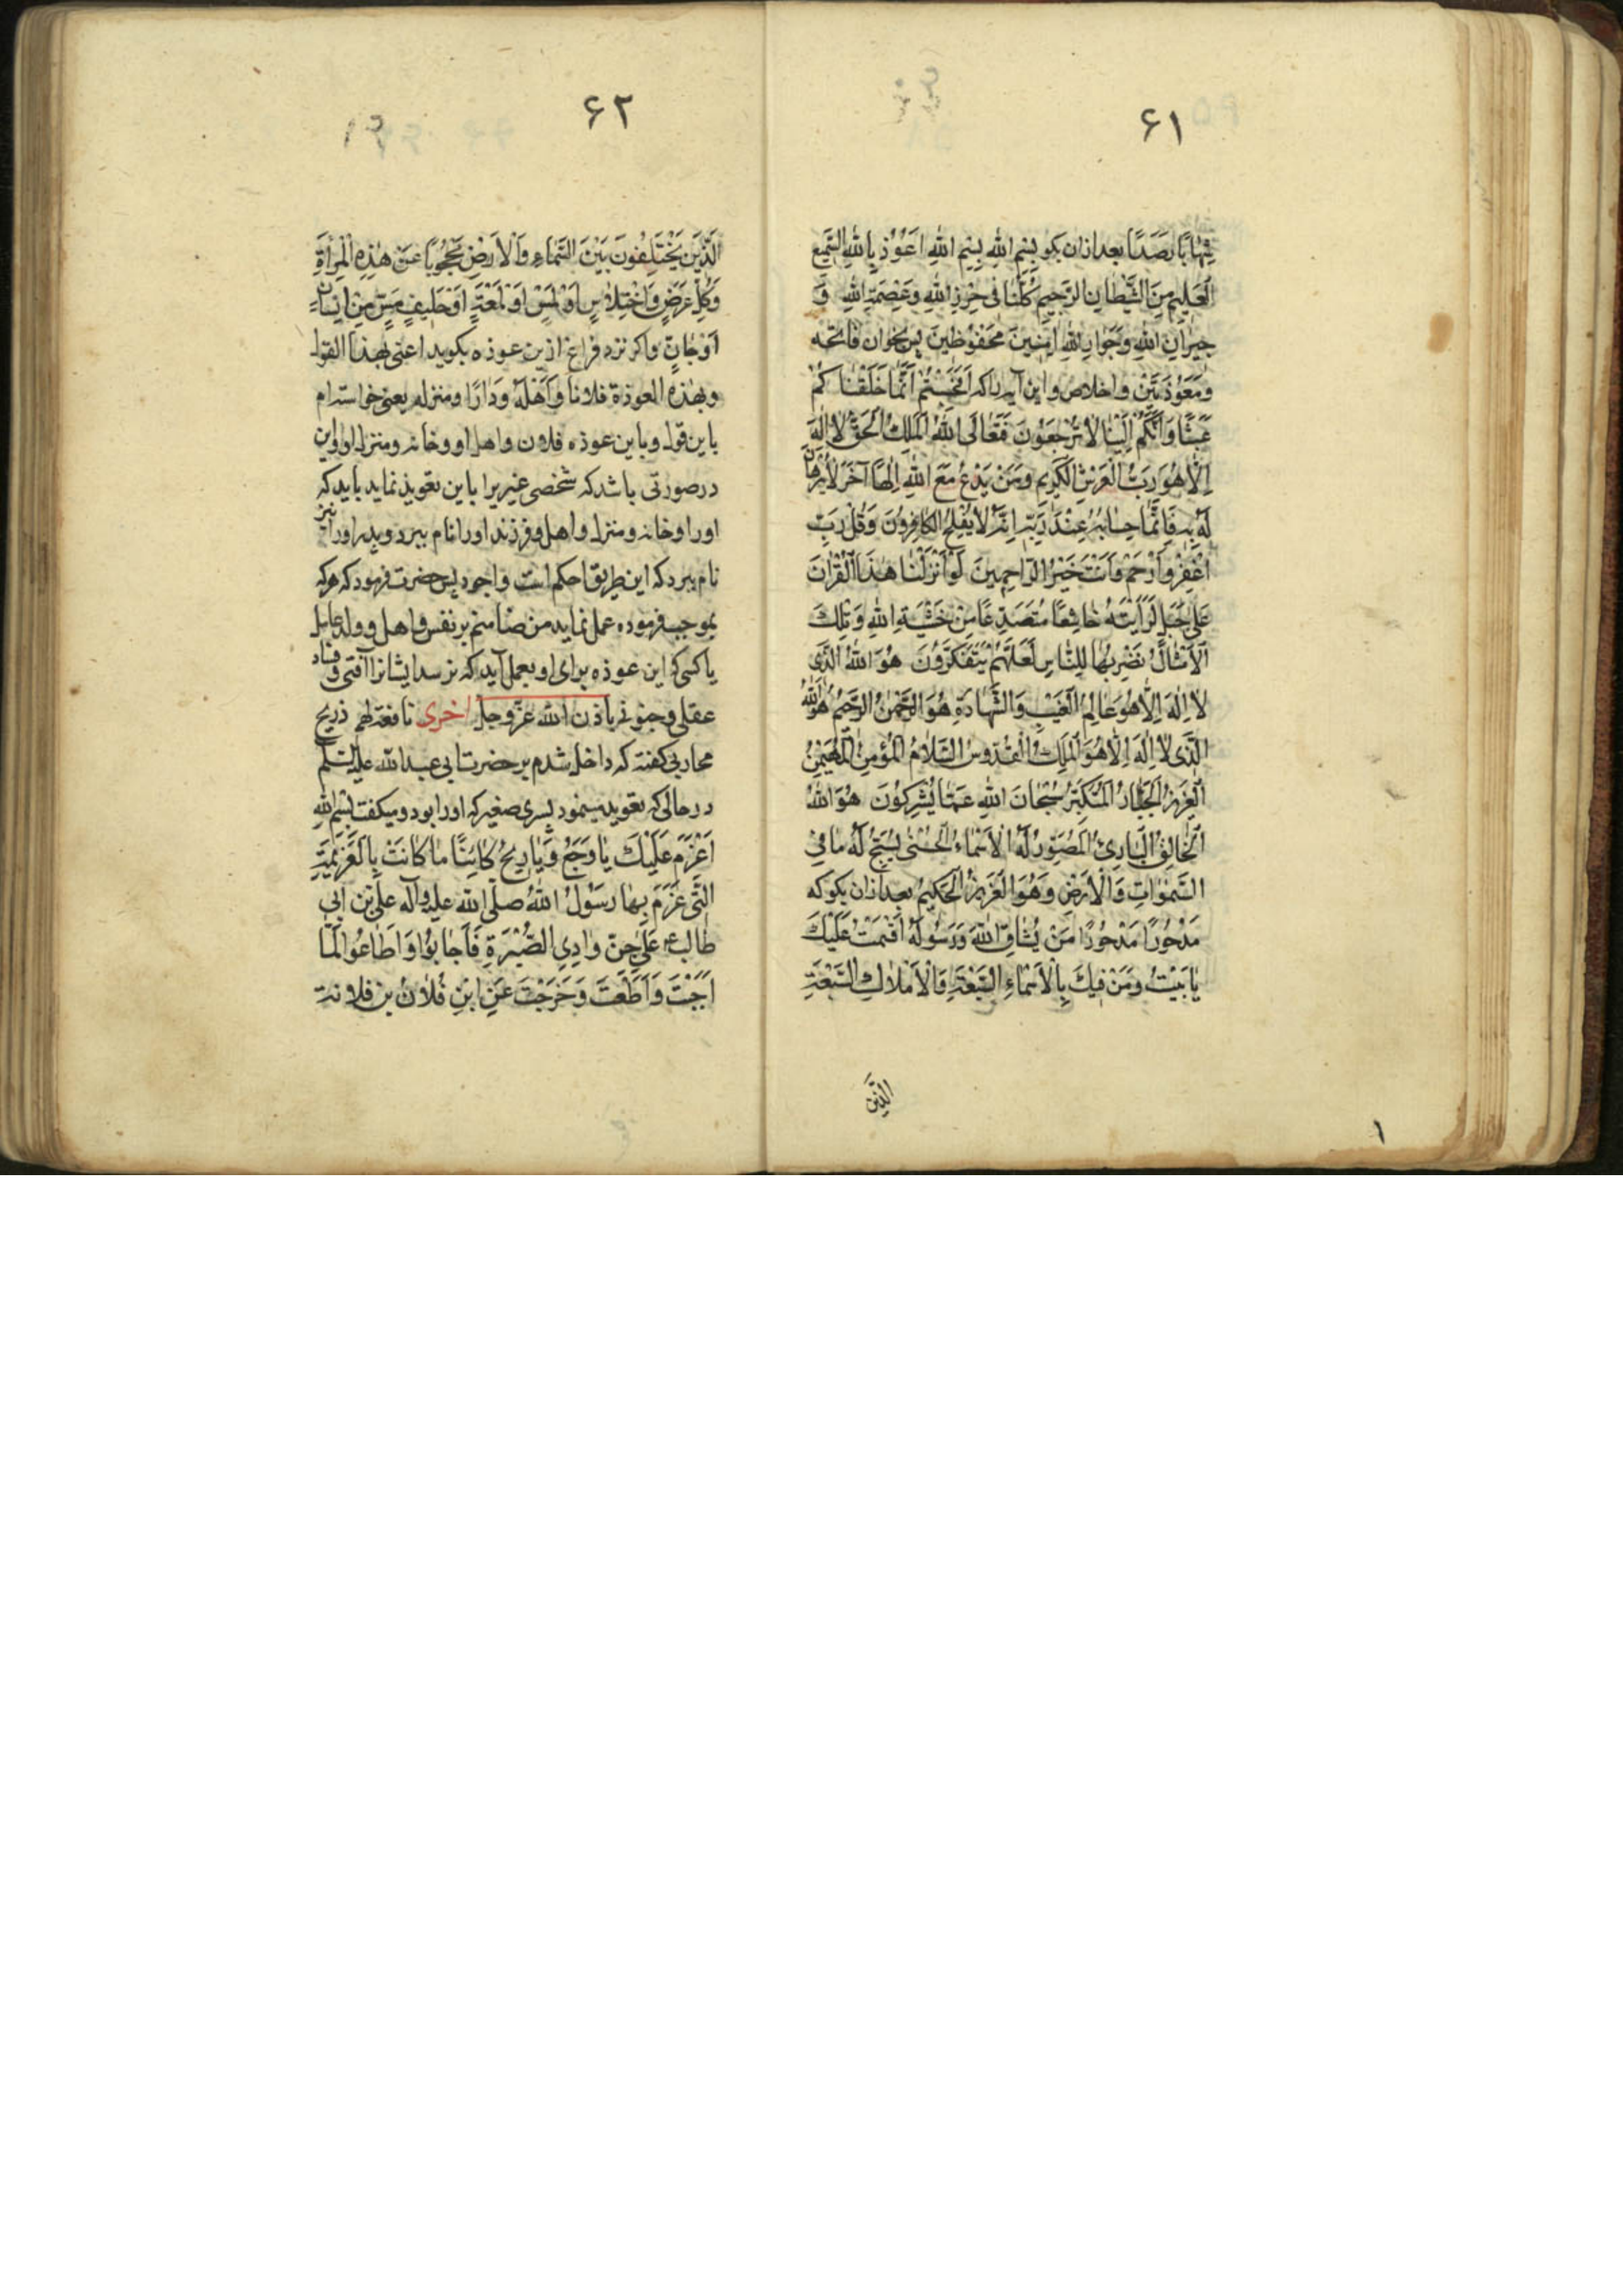 ۶۱
شِهَابًا رَصَدًا بعد ازان بکو بِسْمِ اللهِ بِسْمِ اللهِ اَعُوْذُ بِاللهِ السَّمِیعِ
الْعَلِیمِ مِنَ الشَّیْطَانِ الرَّجِیمِ کُلُّنَا فِی حِرْزِ اللهِ وَعِصْمَةِ اللهِ وَ
جِیرَانِ اللهِ وَجِوَارِ اللهِ اٰمِنِینَ مَحْفُوظِینَ پس بخوان فاتحه
وَمُعَوَّذَتَیْنِ و اخلاص و این آیه را که اَفَحَسِبْتُمْ اَنَّمَا خَلَقْنَا کُمْ
عَبَثًا وَاَنَّکُمْ اِلَیْنَا لَا تُرْجَعُونَ فَتَعَالَی اللهُ الْمَلِکُ الْحَقُّ لَا اِلٰهَ
اِلَّا هُوَ رَبُّ الْعَرْشِ الْکَرِیمِ وَمَنْ یَدْعُ مَعَ اللهِ اِلٰهًا آخَرَ لَا بُرْهَانَ
لَهُ بِهِ فَاِنَّمَا حِسَابُهُ عِنْدَ رَبِّهِ اِنَّهُ لَا یُفْلِحُ الْکَافِرُونَ وَقُلْ رَبِّ
اغْفِرْ وَارْحَمْ وَاَنْتَ خَیْرُ الرَّاحِمِینَ لَوْ اَنْزَلْنَا هٰذَا الْقُرْاٰنَ
عَلٰی جَبَلٍ لَرَاَیْتَهُ خَاشِعًا مُتَصَدِّعًا مِنْ خَشْیَةِ اللهِ وَتِلْکَ
الْاَمْثَالُ نَضْرِبُهَا لِلنَّاسِ لَعَلَّهُمْ یَتَفَکَّرُونَ هُوَ اللهُ الَّذِی
لَا اِلٰهَ اِلَّا هُوَ عَالِمُ الْغَیْبِ وَالشَّهَادَةِ هُوَ الرَّحْمٰنُ الرَّحِیمُ هُوَ اللهُ
الَّذِی لَا اِلٰهَ اِلَّا هُوَ الْمَلِکُ الْقُدُّوسُ السَّلَامُ الْمُؤْمِنُ الْمُهَیْمِنُ
الْعَزِیزُ الْجَبَّارُ الْمُتَکَبِّرُ سُبْحَانَ اللهِ عَمَّا یُشْرِکُونَ هُوَ اللهُ
الْخَالِقُ الْبَارِئُ الْمُصَوِّرُ لَهُ الْاَسْمَاءُ الْحُسْنٰی یُسَبِّحُ لَهُ مَا فِی
السَّمٰوَاتِ وَالْاَرْضِ وَهُوَ الْعَزِیزُ الْحَکِیمُ بعد ازان بکو که
مَدْحُورًا مَدْحُورًا مَنْ یُشَاقِّ اللهَ وَرَسُولَهُ اَقْسَمْتُ عَلَیْکَ
یَا بَیْتُ وَمَنْ فِیکَ بِالْاَسْمَاءِ السَّبْعَةِ وَالْاَمْلَاکِ السَّبْعَةِ
الَّذِینَ
۱
۶۲
الَّذِینَ یَخْتَلِفُونَ بَیْنَ السَّمَاءِ وَالْاَرْضِ مَحْجُوبًا عَنْ هٰذِهِ الْمَرْأَةِ
وَکُلِّ عَرَضٍ وَاخْتِلَاسٍ اَوْ لَمْسٍ اَوْ لَمْعَةٍ اَوْ طَیْفِ مَسٍّ مِنْ اِنْسَانٍ
اَوْ جَانٍّ واکر نزد فراغ ازین عوذه بکوید اعنی بهذا القول
وبهذه العوذة فلانا وَاَهْلَهُ وَدَارًا ومنزله یعنی خواسته‌ام
باین قول و باین عوذه فلان واهل او و خانه ومنزل او و این
درصورتی باشد که شخصی غیریرا باین تعویذ نماید باید که
او را و خانه ومنزل واهل وفرزند اورا نام ببرد وپدر اورا نیز
نام ببرد که این طریق احکم است واجود پس حضرت فرمود که هر که
بموجب فرموده عمل نماید من ضامنم بر نفس واهل وولد عامل
یا کسی که این عوذه برای او بعمل آید که نرسد ایشانرا آفتی وفساد
عقلی وجنونی باذن الله عزّ وجل اخری نافعة لهم ذریح
محاربی کفته که داخل شدم بر حضرت ابی عبدالله علیه السلم
درحالی که تعویذ مینمود پسری صغیر که او را بود و میکفت بِسْمِ اللهِ
اَعْزِمُ عَلَیْکَ یَا وَجَعُ وَیَا رِیحُ کَائِنًا مَا کَانَتْ بِالْعَزِیمَةِ
الَّتِی عَزَمَ بِهَا رَسُولُ اللهُ صلّی الله علیه وآله علیّ بن ابی
طالب ع عَلٰی جِنِّ وَادِی الصُّبْرَةِ فَاَجَابُوا وَاَطَاعُوا لَمَّا
اَجَبْتَ وَاَطَعْتَ وَخَرَجْتَ عَنِ ابْنِ فُلَان بن فلانة